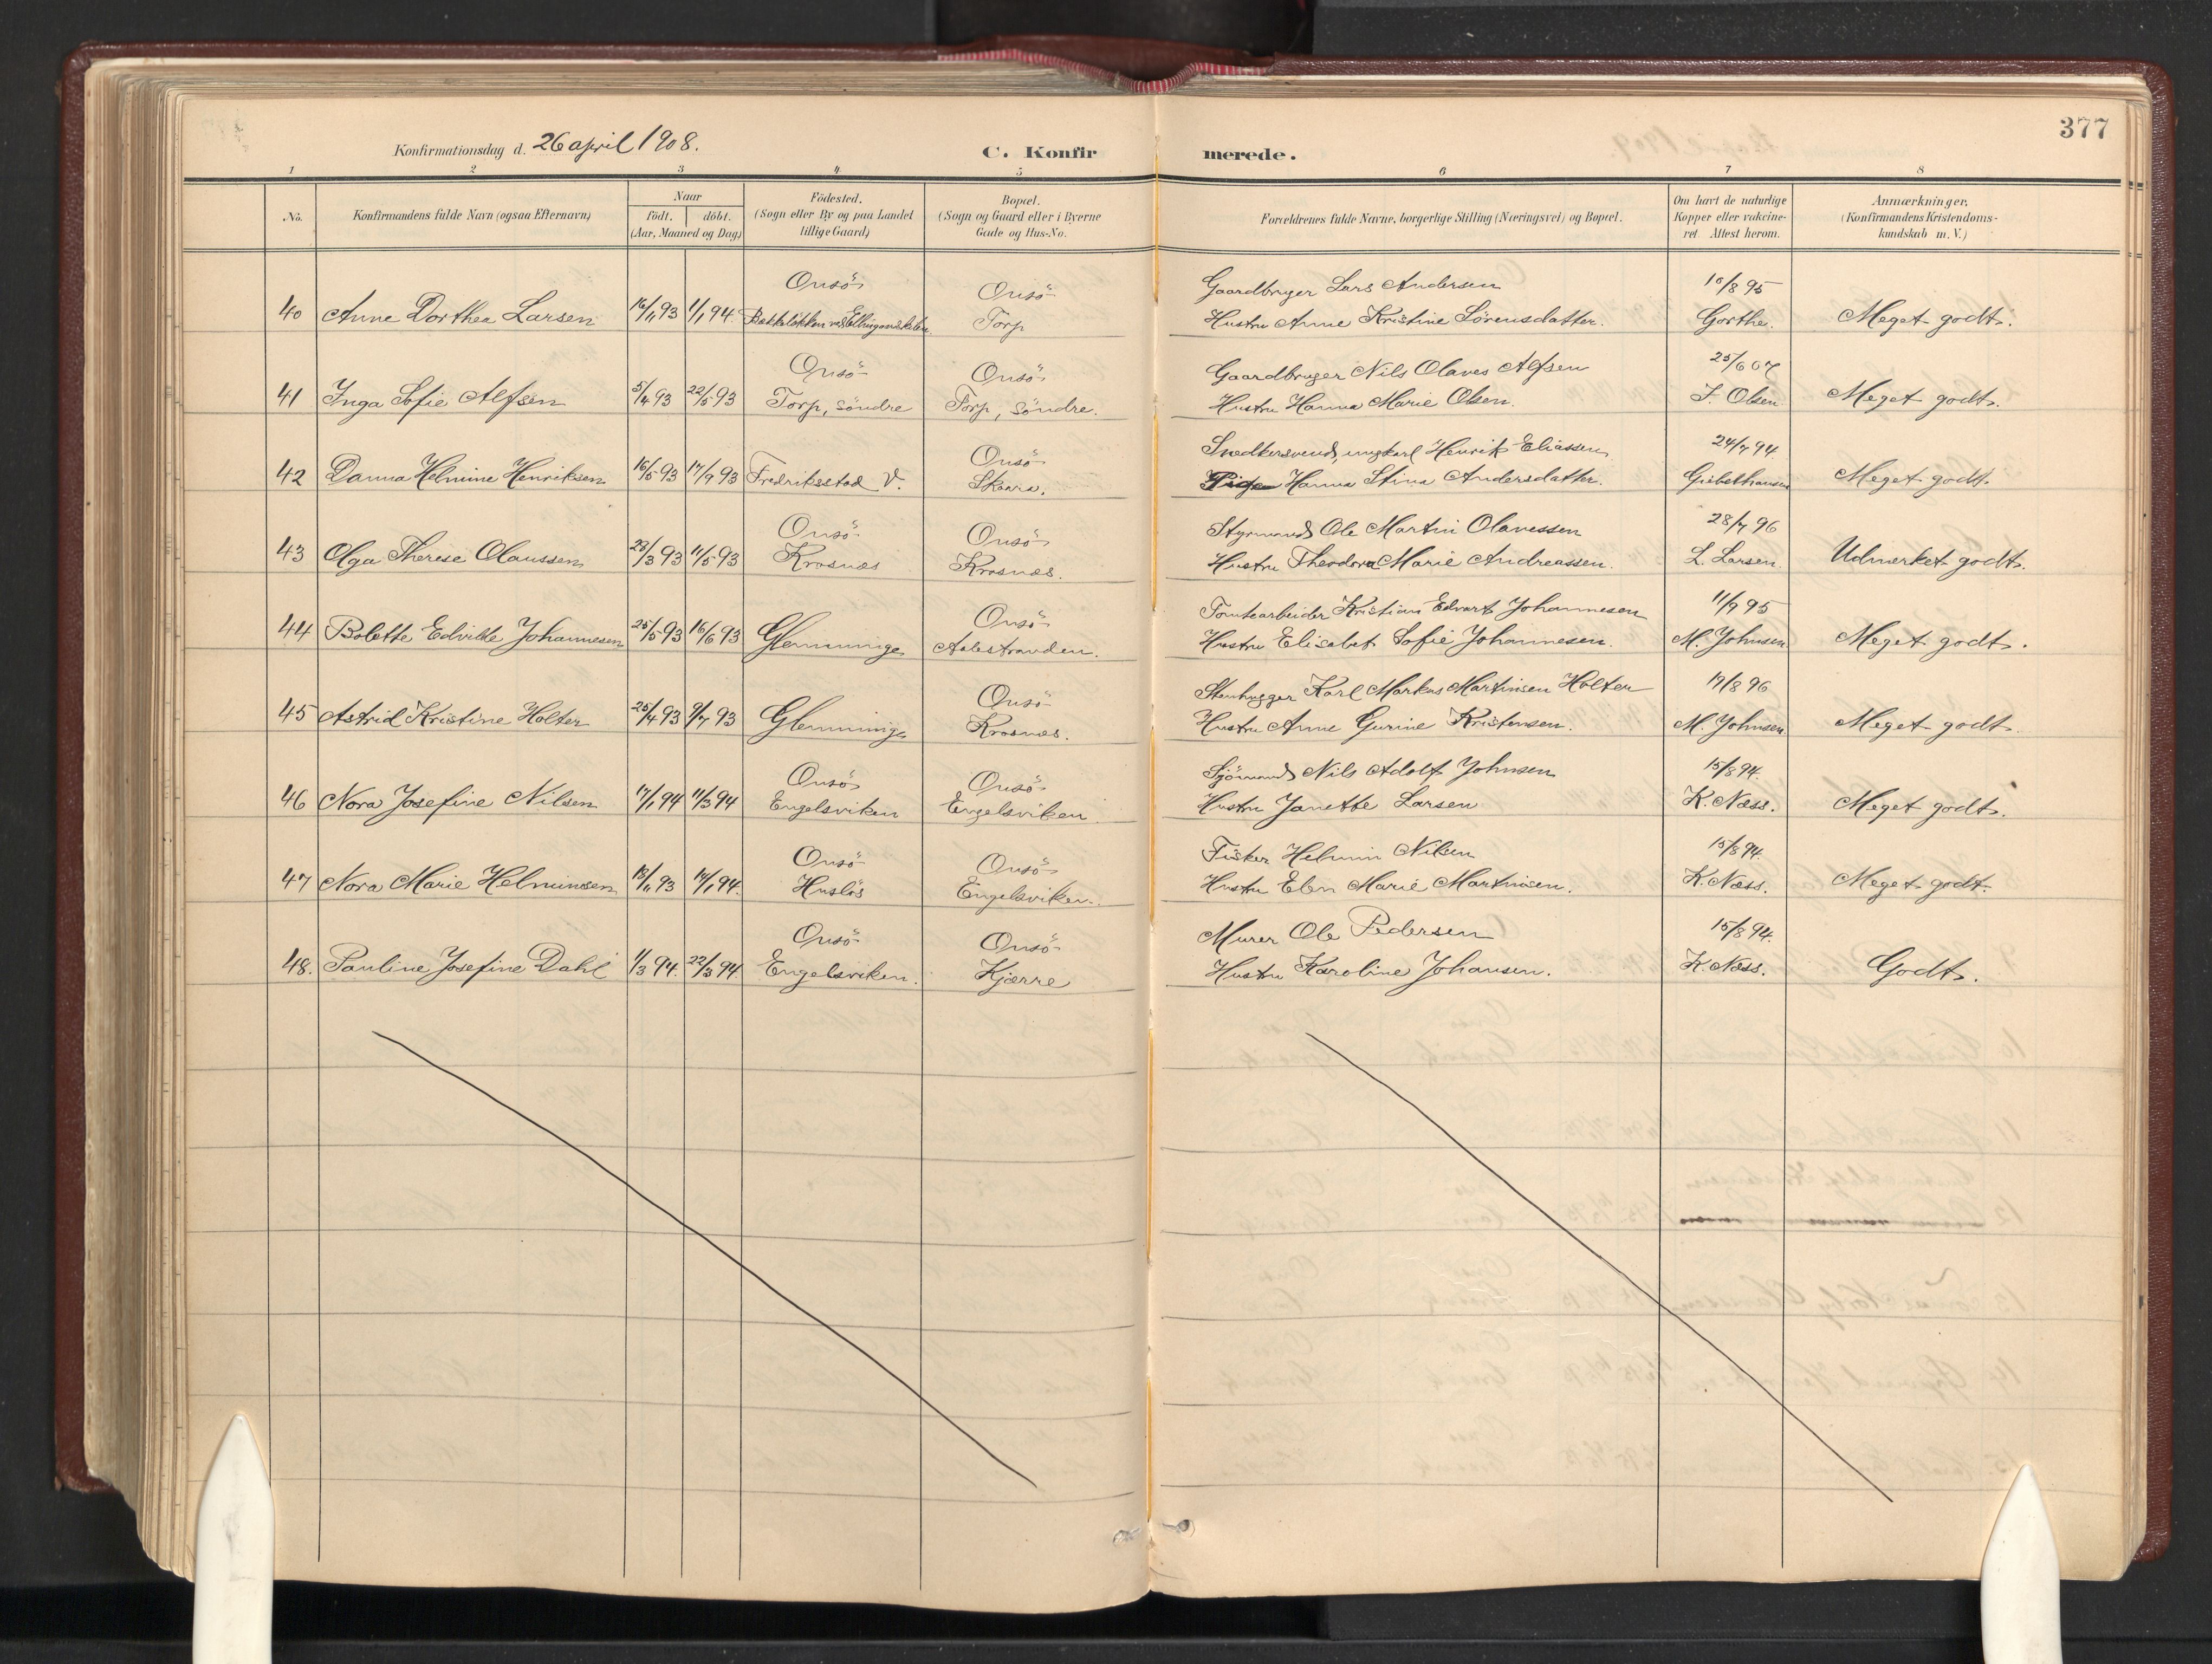 377
Konfirmationsdag d. 26 april 1908.
C. Konfirmerede.
1 2 3 4 5 6 7 8
No.
Konfirmandens fulde Navn (ogsaa Efternavn)
Naar
födt. döbt.
(Aar, Maaned og Dag)
Födested.
(Sogn eller By og paa Landet
tillige Gaard)
Bopæl.
(Sogn og Gaard eller i Byerne
Gade og Hus-No.
Forældrenes fulde Navne, borgerlige Stilling (Næringsvei) og Bopæl.
Om havt de naturlige
Kopper eller vakcine-
ret. Attest herom.
Anmærkninger.
(Konfirmandens Kristendoms-
kundskab m. V.)
Onsö Onsö Gaardbruger Lars Andersen 10/8 95
40 Anne Dorthea Larsen 16/11 93 1/1 94. Torp Hustru Anne Kristine Sörensdatter. Gorthe. Meget godt.
Onsö Onsö Gaardbruger Nils Olaves Alfsen 25/6 07
41 Inga Sofie Alfsen 5/4 93 22/5 93 Torp, söndre Torp, söndre. Hustru Hanna Marie Olsen. J. Olsen Meget godt.
Onsö Snedkersvend, ungkarl Henrik Eliassen 24/7 94
42 Danna Helmine Henriksen 16/5 93 17/9 93 Fredriksstad V. Skaara. Pige Hanna Stina Andersdatter. Giebelhausen Meget godt.
Onsö Onsö Styrmand Ole Martin Olavessen 28/7 96
43 Olga Therese Olaussen 28/3 93 11/5 93 Krosnæs Krosnæs. Hustru Theodora Marie Andreassen. L. Larsen. Udmerket godt.
Onsö Tomtearbeider Kristian Edvart Johannesen 11/9 95
44 Bolette Edvilde Johannesen 25/5 93 16/6 93 Glemminge Aalestranden. Hustru Elisabet Sofie Johannesen. M. Johnsen Meget godt.
Onsö Stenhugger Karl Markus Martinsen Holter 19/8 96
45 Astrid Kristine Holter 25/4 93 9/7 93 Glemminge Krosnæs. Hustru Anne Gurine Kristensen. M. Johnsen Meget godt.
Onsö Onsö Sjömand Nils Adolf Johnsen 15/8 94.
46 Nora Josefine Nilsen 17/1 94 11/3 94 Engelsviken Engelsviken. Hustru Janette Larsen K. Næss. Meget godt.
Onsö Onsö Fisker Helmin Nilsen 15/8 94.
47 Nora Marie Helminsen 18/11 93 14/1 94. Huslös Engelsviken. Hustru Elen Marie Martinsen. K. Næss. Meget godt.
Onsö Onsö Murer Ole Pedersen 15/8 94.
48. Pauline Josefine Dahl 1/3 94. 22/3 94. Engelsviken. Kjærre Hustru Karoline Johansen. K. Næss. Godt.